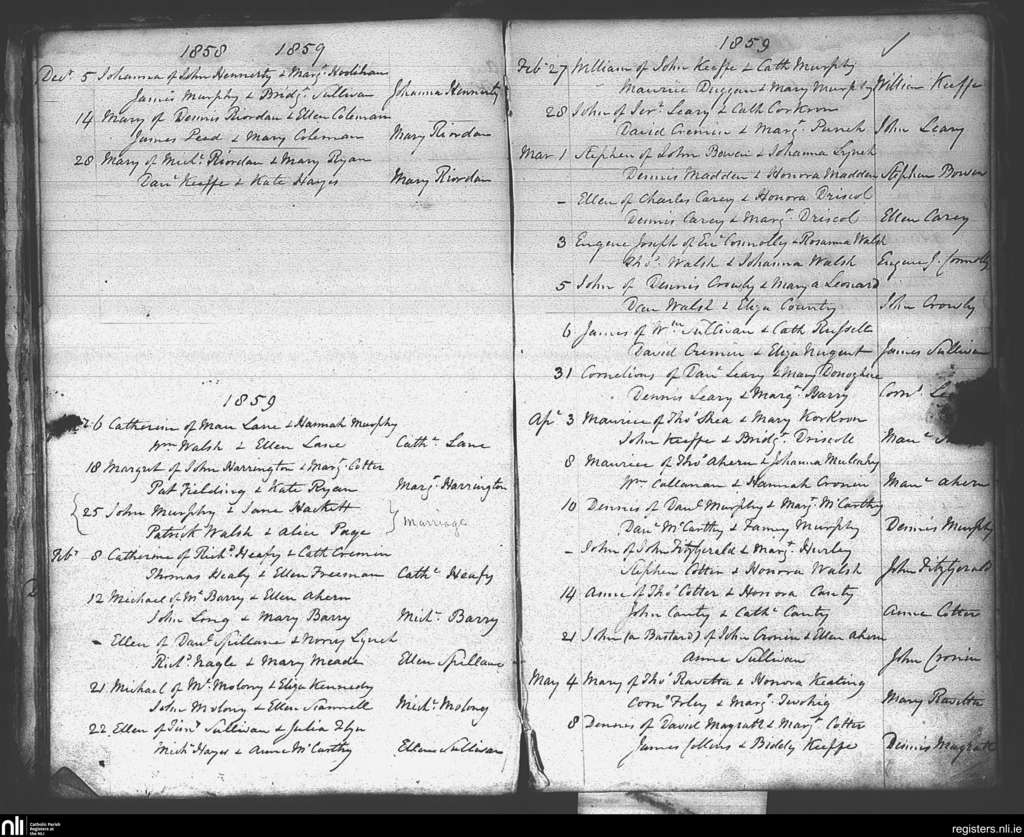 1858 1859
Decr 5 Johanna of John Hennerty & Margt Hoolihan
James Murphy & Bridgt Sullivan Johanna Hennerty
14 Mary of Dennis Riordan & Ellen Coleman
James Pead & Mary Coleman Mary Riordan
28 Mary of Michl Riordan & Mary Ryan
Danl Keeffe & Kate Hayes Mary Riordan
1859
6 Catherine of Mau Lane & Hannah Murphy
Wm Walsh & Ellen Lane Cathe Lane
18 Margret of John Harrington & Margt Cotter
Pat Fielding & Kate Ryan Margt Harrington
25 John Murphy & Jane Hackett
Patrick Walsh & Alice Page Marriage
Feby 8 Catherine of Richd Heafy & Cath Cremin
Thomas Healy & Ellen Freeman Cathe Heafy
12 Michael of Ml Barry & Ellen Ahern
John Long & Mary Barry Michl Barry
- Ellen of Danl Spillane & Norry Lynch
Richd Nagle & Mary Meade Ellen Spillane
21 Michael of Ml Molony & Eliza Kennedy
John Molony & Ellen Scannell Michl Molony
22 Ellen of Timy Sullivan & Julia
Michl Hayes & Anne McCarthy Ellen Sullivan
1859
Feb 27 William of John Keeffe & Cath Murphy
Maurice Duggan & Mary Murphy William Keeffe
28 John of Jery Leary & Cath Corkron
David Cremin & Margt Punch John Leary
Mar 1 Stephen of John Bowen & Johanna Lynch
Dennis Madden & Honora Madden Stephen Bowen
- Ellen of Charles Carey & Honora Driscol
Dennis Carey & Margt Driscol Ellen Carey
3 Eugene Joseph of Eue Connolly & Rosanna Walsh
Thos Walsh & Johanna Walsh Eugene J. Connolly
5 John of Dennis Crowly & Mary a Leonard
Dan Walsh & Eliza County John Crowly
6 James of Wm Sullivan & Cath Russell
David Cremin & Eliza Nugent James Sullivan
31 Cornelious of Danl Leary & Mary Donoghue
Dennis Leary & Margt Barry Corns
Apl 3 Maurice of Thos Shea & Mary Korkron
John Keeffe & Bridgt Driscoll Maue
8 Maurice of Thos Ahern & Johanna Mulcahy
Wm Callanan & Hannah Cronin Maue Ahern
10 Dennis of Danl Murphy & Margt McCarthy
Danl McCarthy & Fanny Murphy Dennis Murphy
- John of John Fitzgerald & Margt Hurley
Stephen Cotter & Honora Walsh John Fitzgerald
14 Anne of Thos Cotter & Honora Canty
John Canty & Cathe Canty Anne Cotter
21 John (a Bastard) of John Cronin & Ellen Ahern
Anne Sullivan John Cronin
May 4 Mary of Thos Rasetta & Honora Keating
Corns Foley & Margt Twohig Mary Rasetta
8 Dennis of David Magrath & Margt Cotter
James Collins & Biddy Keeffe Dennis Magrath
nli Catholic Parish Registers at the NLI
registers.nli.ie